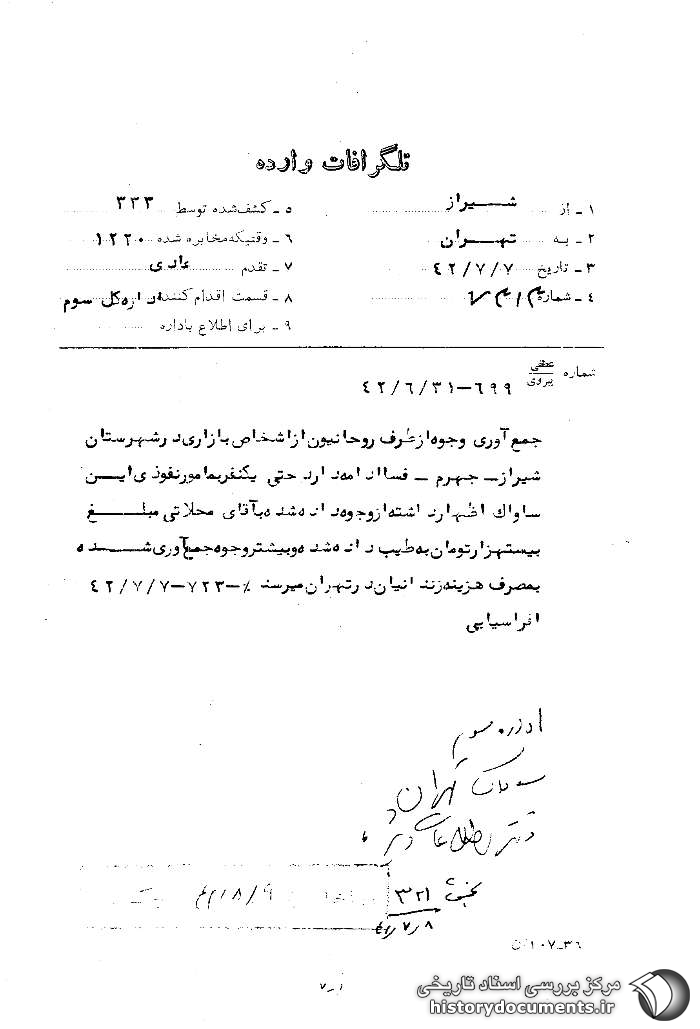 تلگرافات وارده
۱ - از شیراز
۲ - به تهران
۳ - تاریخ ۴۲/۷/۷
۴ - شماره
۵ - کشف شده توسط ۳۳۳
۶ - وقتیکه مخابره شده ۱۲۲۰
۷ - تقدم عادی
۸ - قسمت اقدام کننده اداره کل سوم
۹ - برای اطلاع باداره
شماره عطفی پیروی ۶۹۹-۴۲/۶/۳۱
جمع آوری وجوه از طرف روحانیون از اشخاص بازاری در شهرستان
شیراز - جهرم - فسا ادامه دارد حتی یکنفر بمامور نفوذی این
ساواك اظهار داشته از وجوه داده شده بآقای محلاتی مبلغ
بیستهزار تومان به طیب داده شده و بیشتر وجوه جمع آوری شده
بمصرف هزینه زندانیان در تهران میرسد ٪-۷۲۳-۴۲/۷/۷
افراسیابی
اداره سوم
ساواک تهران
دفتر اطلاعات
بخش ۳۲۱
۷/۸
۳۶-۱۰۷ ن
۷-۱
مرکز بررسی اسناد تاریخی
historydocuments.ir